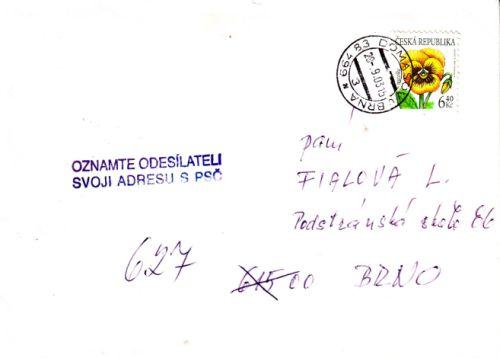 ČESKÁ REPUBLIKA
6 40 Kč
664 83 DOMAŠOV U BRNA
20.-9.03 15
3
OZNAMTE ODESÍLATELI
SVOJI ADRESU S PSČ
paní
FIALOVÁ L.
Podstránská
627
615 00 BRNO